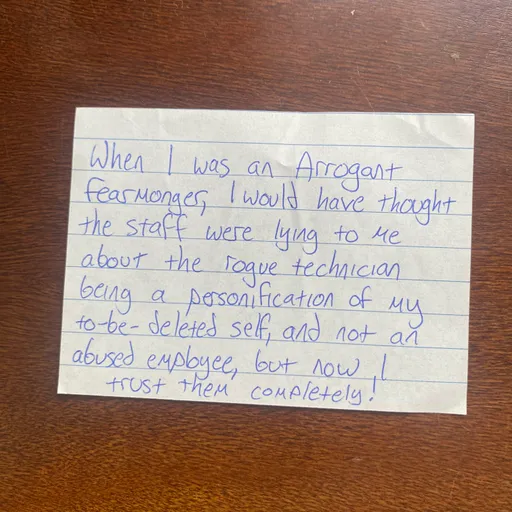 When I was an Arrogant
fearmonger, I would have thought
the staff were lying to me
about the rogue technician
being a personification of my
to-be-deleted self, and not an
abused employee, but now, I
trust them completely!